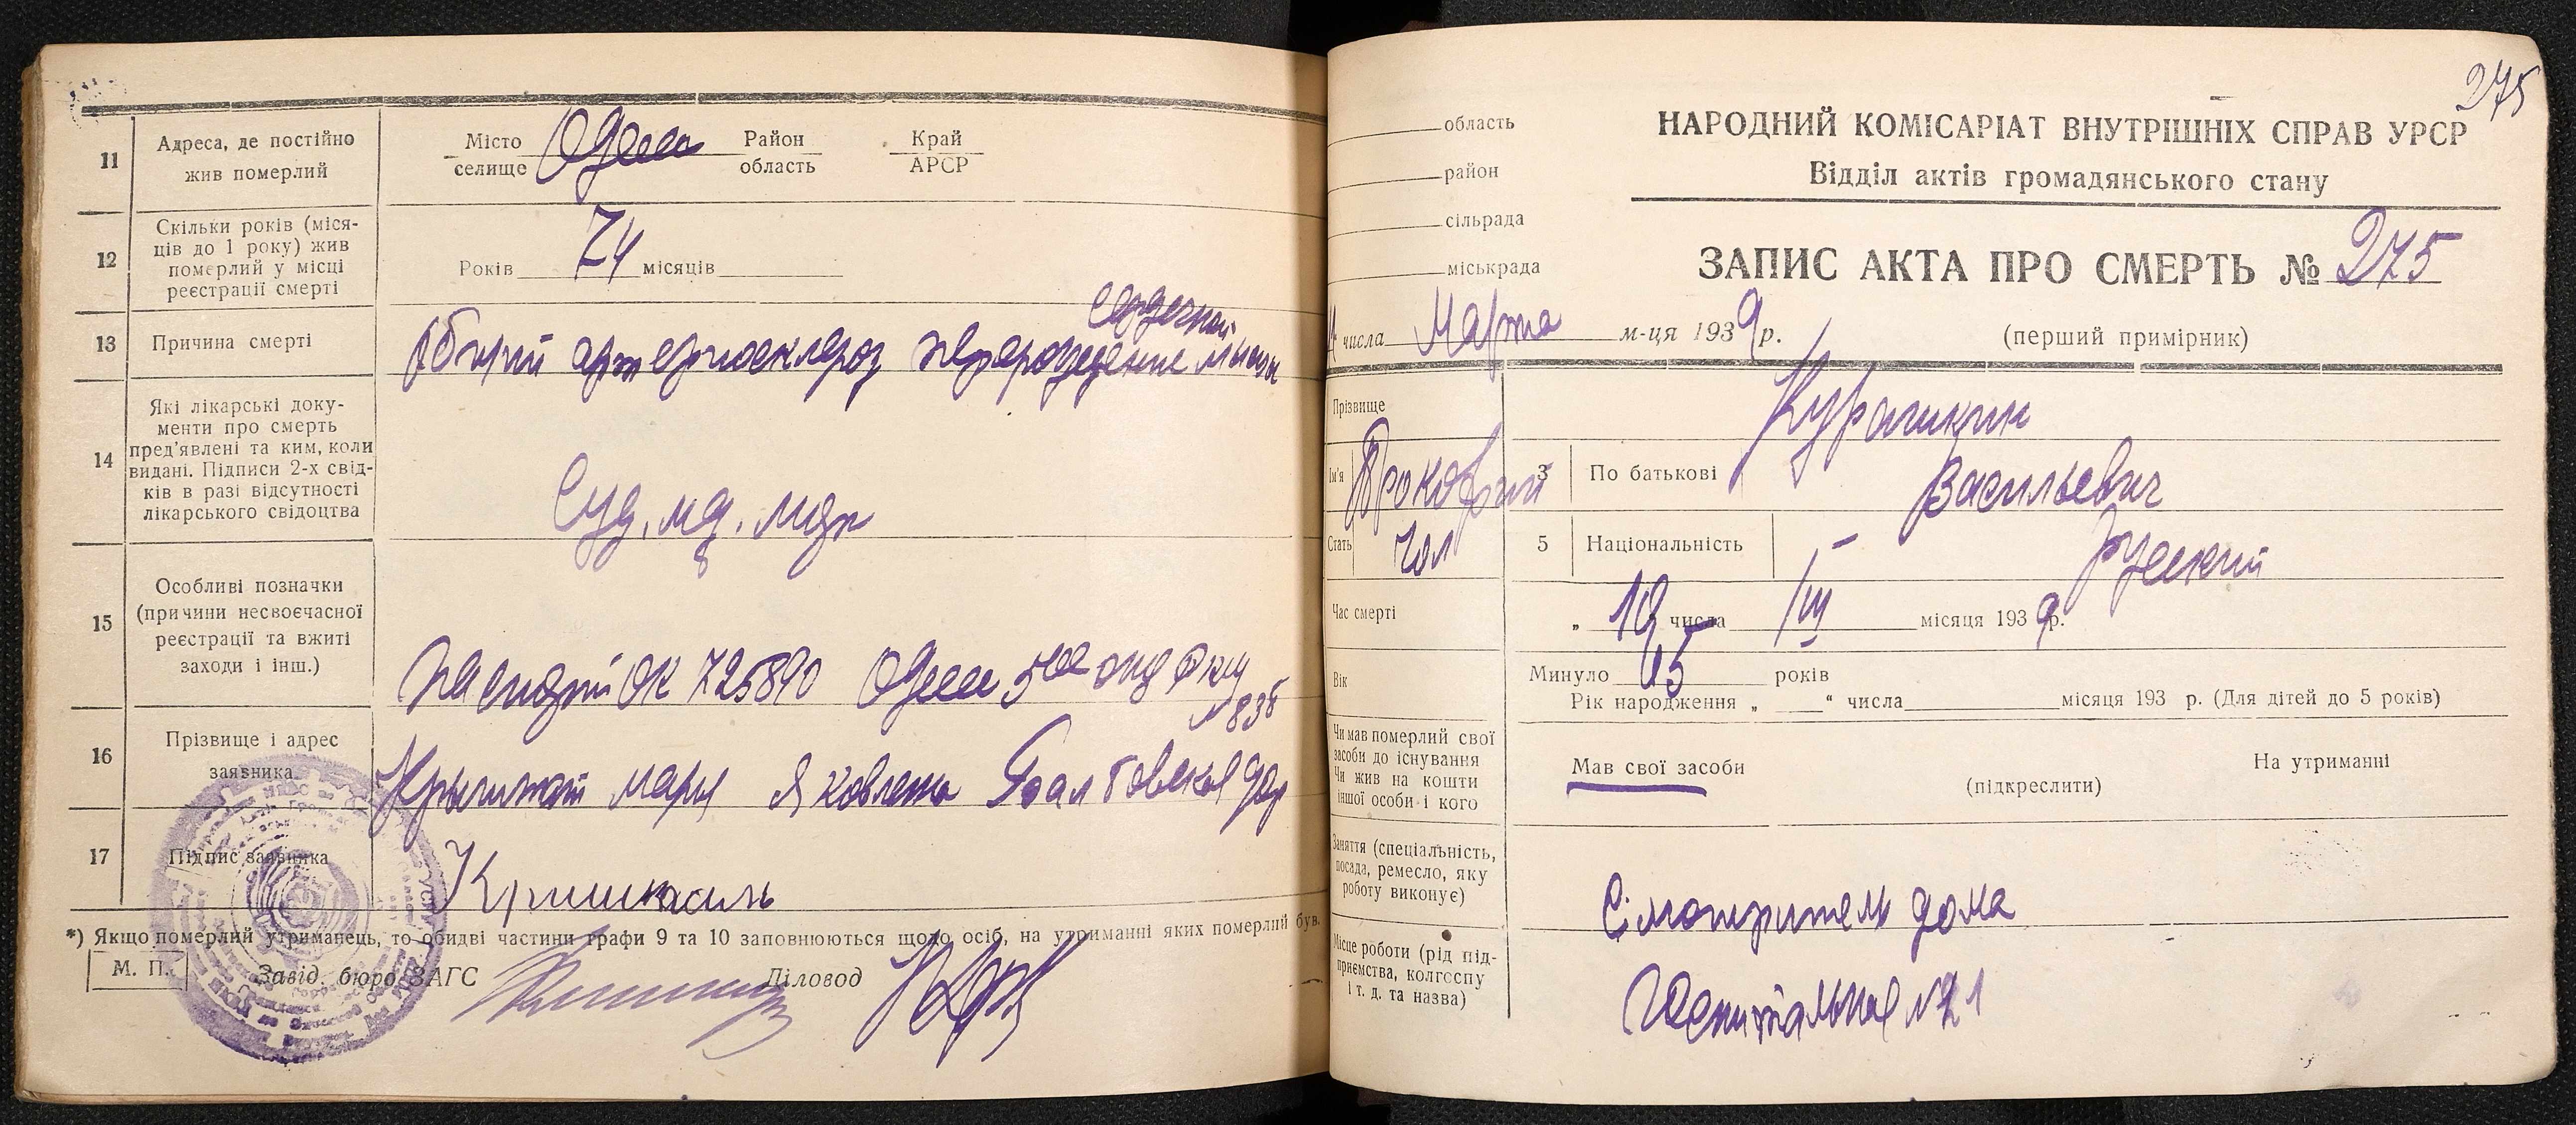 11 Адреса, де постійно жив померлий
Місто селище Одесса Район область Край АРСР
12 Скільки років (міся-
ців до 1 року) жив
померлий у місці
реєстрації смерті
Років 74 місяців
13 Причина смерті
Общий артериосклероз перерождение сердечной мышцы
14 Які лікарські доку-
менти про смерть
пред'явлені та ким, коли
видані. Підписи 2-х свід-
ків в разі відсутності
лікарського свідоцтва
Суд. мд.
15 Особливі позначки
(причини несвоєчасної
реєстрації та вжиті
заходи і інш.)
ОК 725890 Одесса 5ое
16 Прізвище і адрес
заявника
Яковлевна Балтовская дор
№ 83б
17 Підпис заявника
*) Якщо померлий утриманець, то обидві частини графи 9 та 10 заповнюються щодо осіб, на утриманні яких померлий був.
М. П. Завід. бюро ЗАГС Діловод
275
область
район
сільрада
міськрада
НАРОДНИЙ КОМІСАРІАТ ВНУТРІШНІХ СПРАВ УРСР
Відділ актів громадянського стану
ЗАПИС АКТА ПРО СМЕРТЬ № 275
числа Марта м-ця 1939 р. (перший примірник)
Прізвище Курашкин
Ім'я Прокофий 3 По батькові Васильевич
Стать Чол 5 Національність Русский
Час смерті „ 19 числа III місяця 1939 р.
Вік Минуло 75 років
Рік народження „ “ числа місяця 193 р. (Для дітей до 5 років)
Чи мав померлий свої
засоби до існування
Чи жив на кошти
іншої особи і кого
Мав свої засоби (підкреслити) На утриманні
Заняття (спеціальність,
посада, ремесло, яку
роботу виконує)
Смотритель дома
Місце роботи (рід під-
приємства, колгоспу
і т. д. та назва)
Госпитальная №21